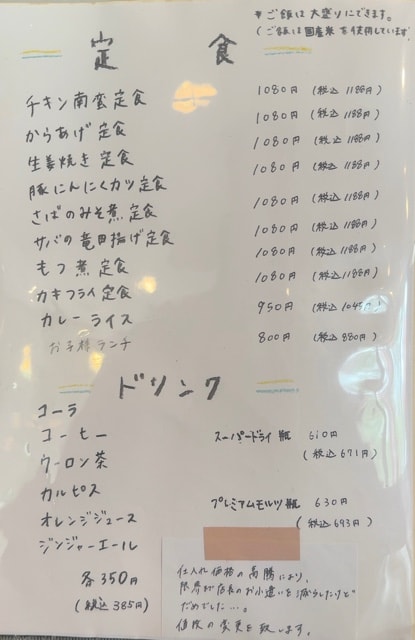 ＊ご飯は大盛りにできます。
(ご飯は国産米を使用しています)
定食
チキン南蛮定食 1080円 (税込 1188円)
からあげ定食 1080円 (税込 1188円)
生姜焼き定食 1080円 (税込 1188円)
豚にんにくカツ定食 1080円 (税込 1188円)
さばのみそ煮定食 1080円 (税込 1188円)
サバの竜田揚げ定食 1080円 (税込 1188円)
もつ煮定食 1080円 (税込 1188円)
カキフライ定食 1080円 (税込 1188円)
カレーライス 950円 (税込 1045円)
お子様ランチ 800円 (税込 880円)
ドリンク
コーラ
コーヒー
ウーロン茶
カルピス
オレンジジュース
ジンジャーエール
各350円
(税込 385円)
スーパードライ 瓶 610円
(税込 671円)
プレミアムモルツ 瓶 630円
(税込 693円)
仕入れ価格の高騰により、
限界まで店長のお小遣いを減らしたけど
だめでした…。
値段の変更を致します。